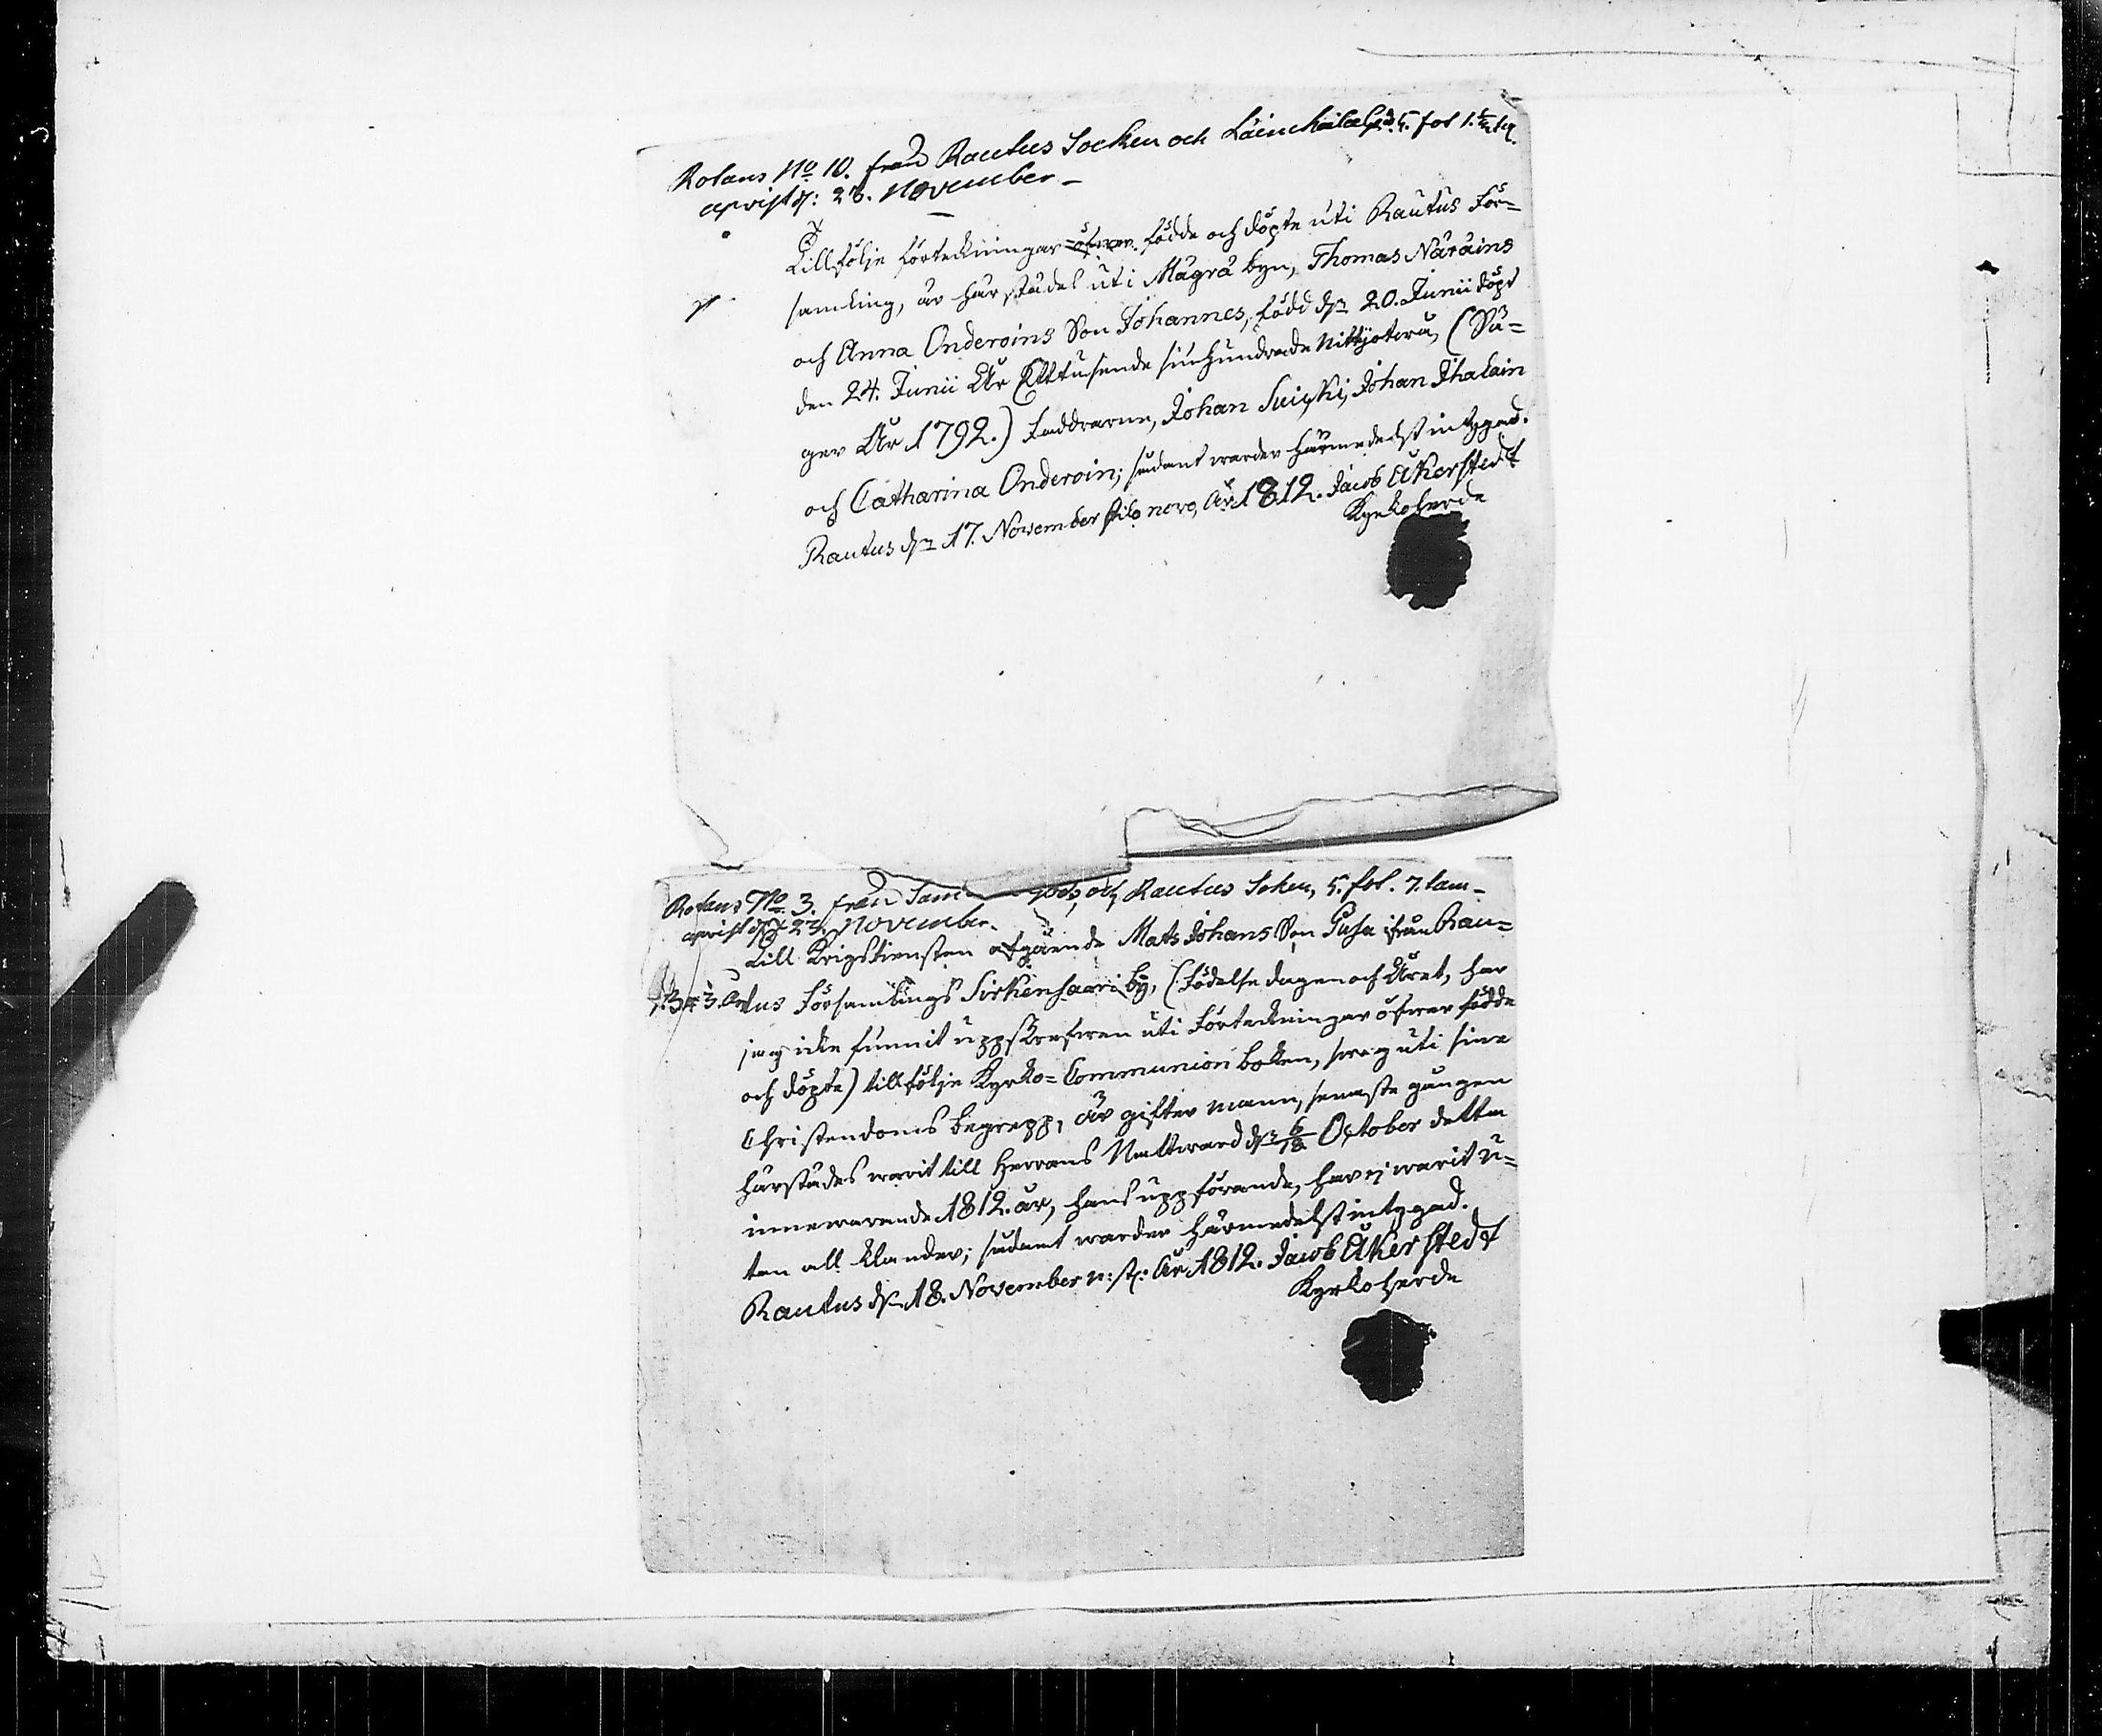 Rotans No 10. från Rautus Socken och
aprist d: 23. November
Tillfölje förteckningar öfwer födde och döpte uti Rautus För=
samling, är härstädes uti Mägrä byn, Thomas Näräins
och Anna Onderoins Son Johannes, född den 20. Junii döpt
den 24. Junii År Ettusende siuhundrade Nittyotwå, (Sä=
ger År 1792.) Faddrarne, Johan Suiski, Johan Ihalain
och Catharina Onderoin; sådant warder härmedelst intygad.
Rautus den 17. November stilo novo, År 1812. Jacob Åkerstedt
Kyrkoherde
Rotans No 3. från och Rautus Soken, 5. fol. 7. lam
aprist d 23. November.
Till Krigstiensten afgående Mats Johans Son Pusa ifrån Rau=
tus Församlings Sirkensaari by, (födelse dagen och Året, har
jag icke funnit uppskrefwen uti Förteckningar öfwer födde
och döpte) tillfölje Kyrko=Communion boken, swag uti sine
Christendoms begrepp, är gifter mann, senaste gången
härstädes warit till Herrans Nattward den 6/18 October detta
innewarande 1812. år, hans uppförande, har ej warit u=
tan all klander; sådant warder härmedelst intygad.
Rautus den 18. November n: st: År 1812. Jacob Åkerstedt
Kyrkoherde